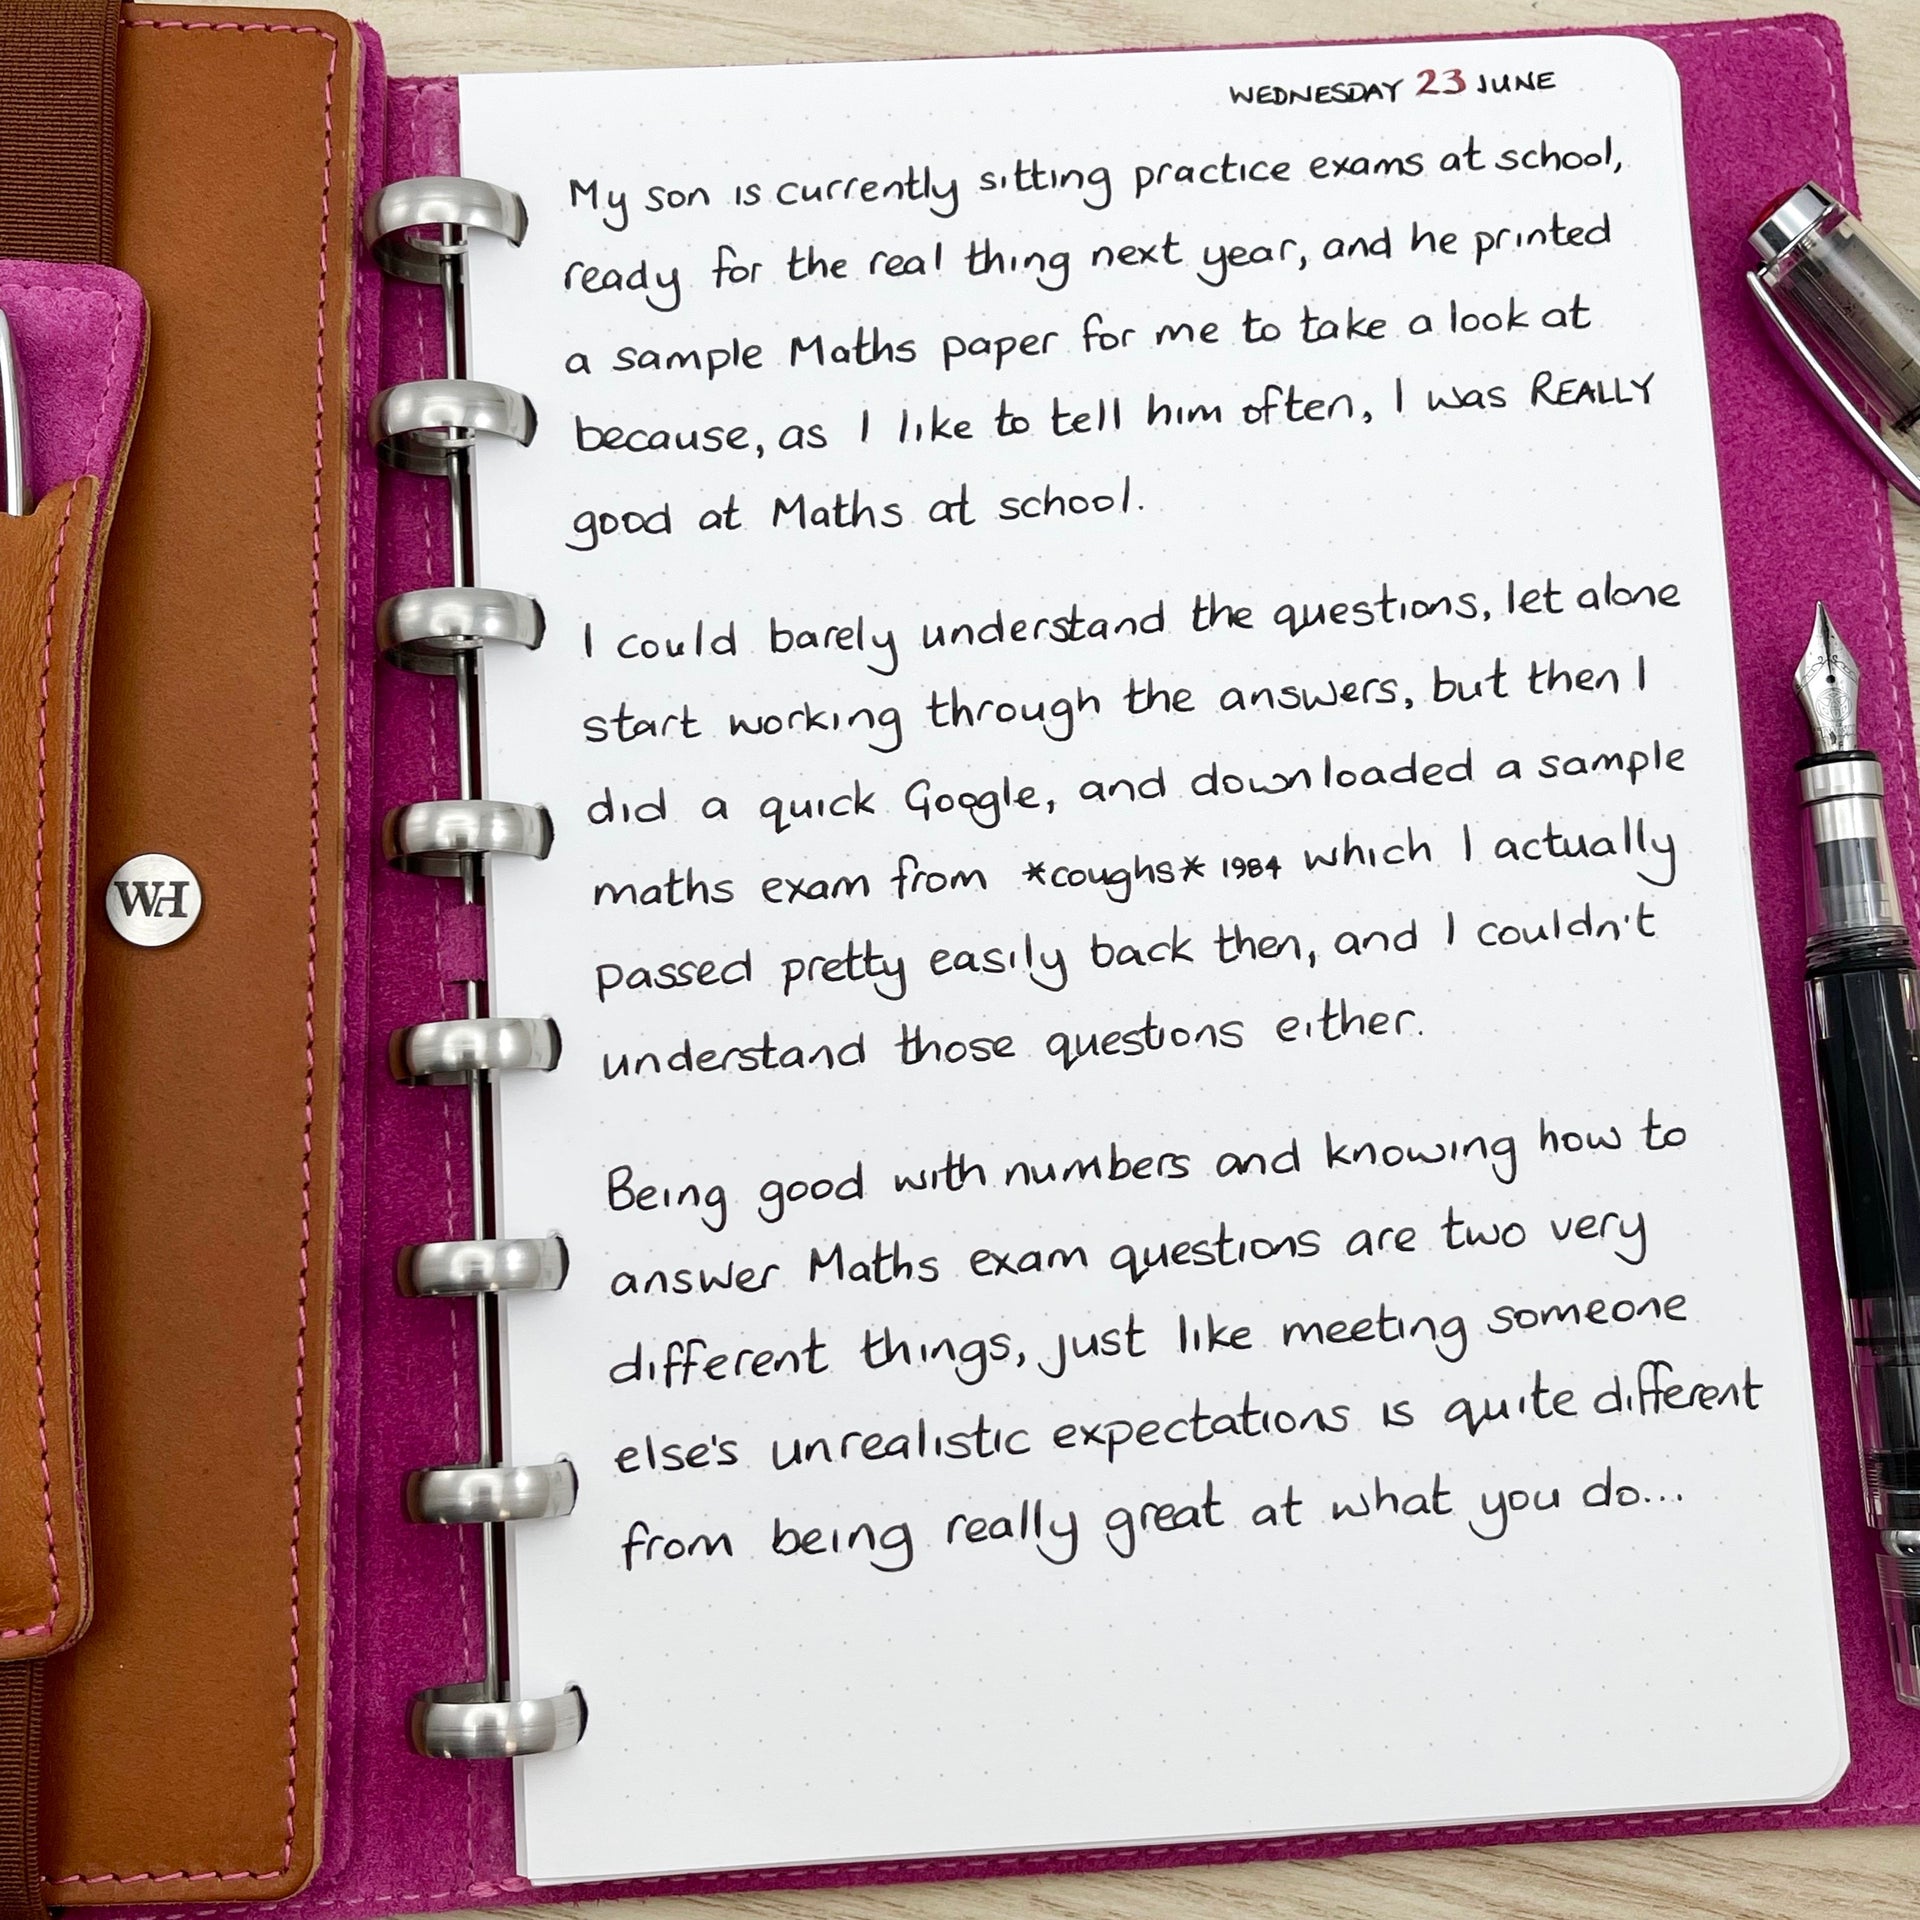 WEDNESDAY 23 JUNE
My son is currently sitting practice exams at school,
ready for the real thing next year, and he printed
a sample Maths paper for me to take a look at
because, as I like to tell him often, I was REALLY
good at Maths at school.
I could barely understand the questions, let alone
start working through the answers, but then I
did a quick Google, and downloaded a sample
maths exam from *coughs* 1984 which I actually
passed pretty easily back then, and I couldn't
understand those questions either.
Being good with numbers and knowing how to
answer Maths exam questions are two very
different things, just like meeting someone
else's unrealistic expectations is quite different
from being really great at what you do...
WH